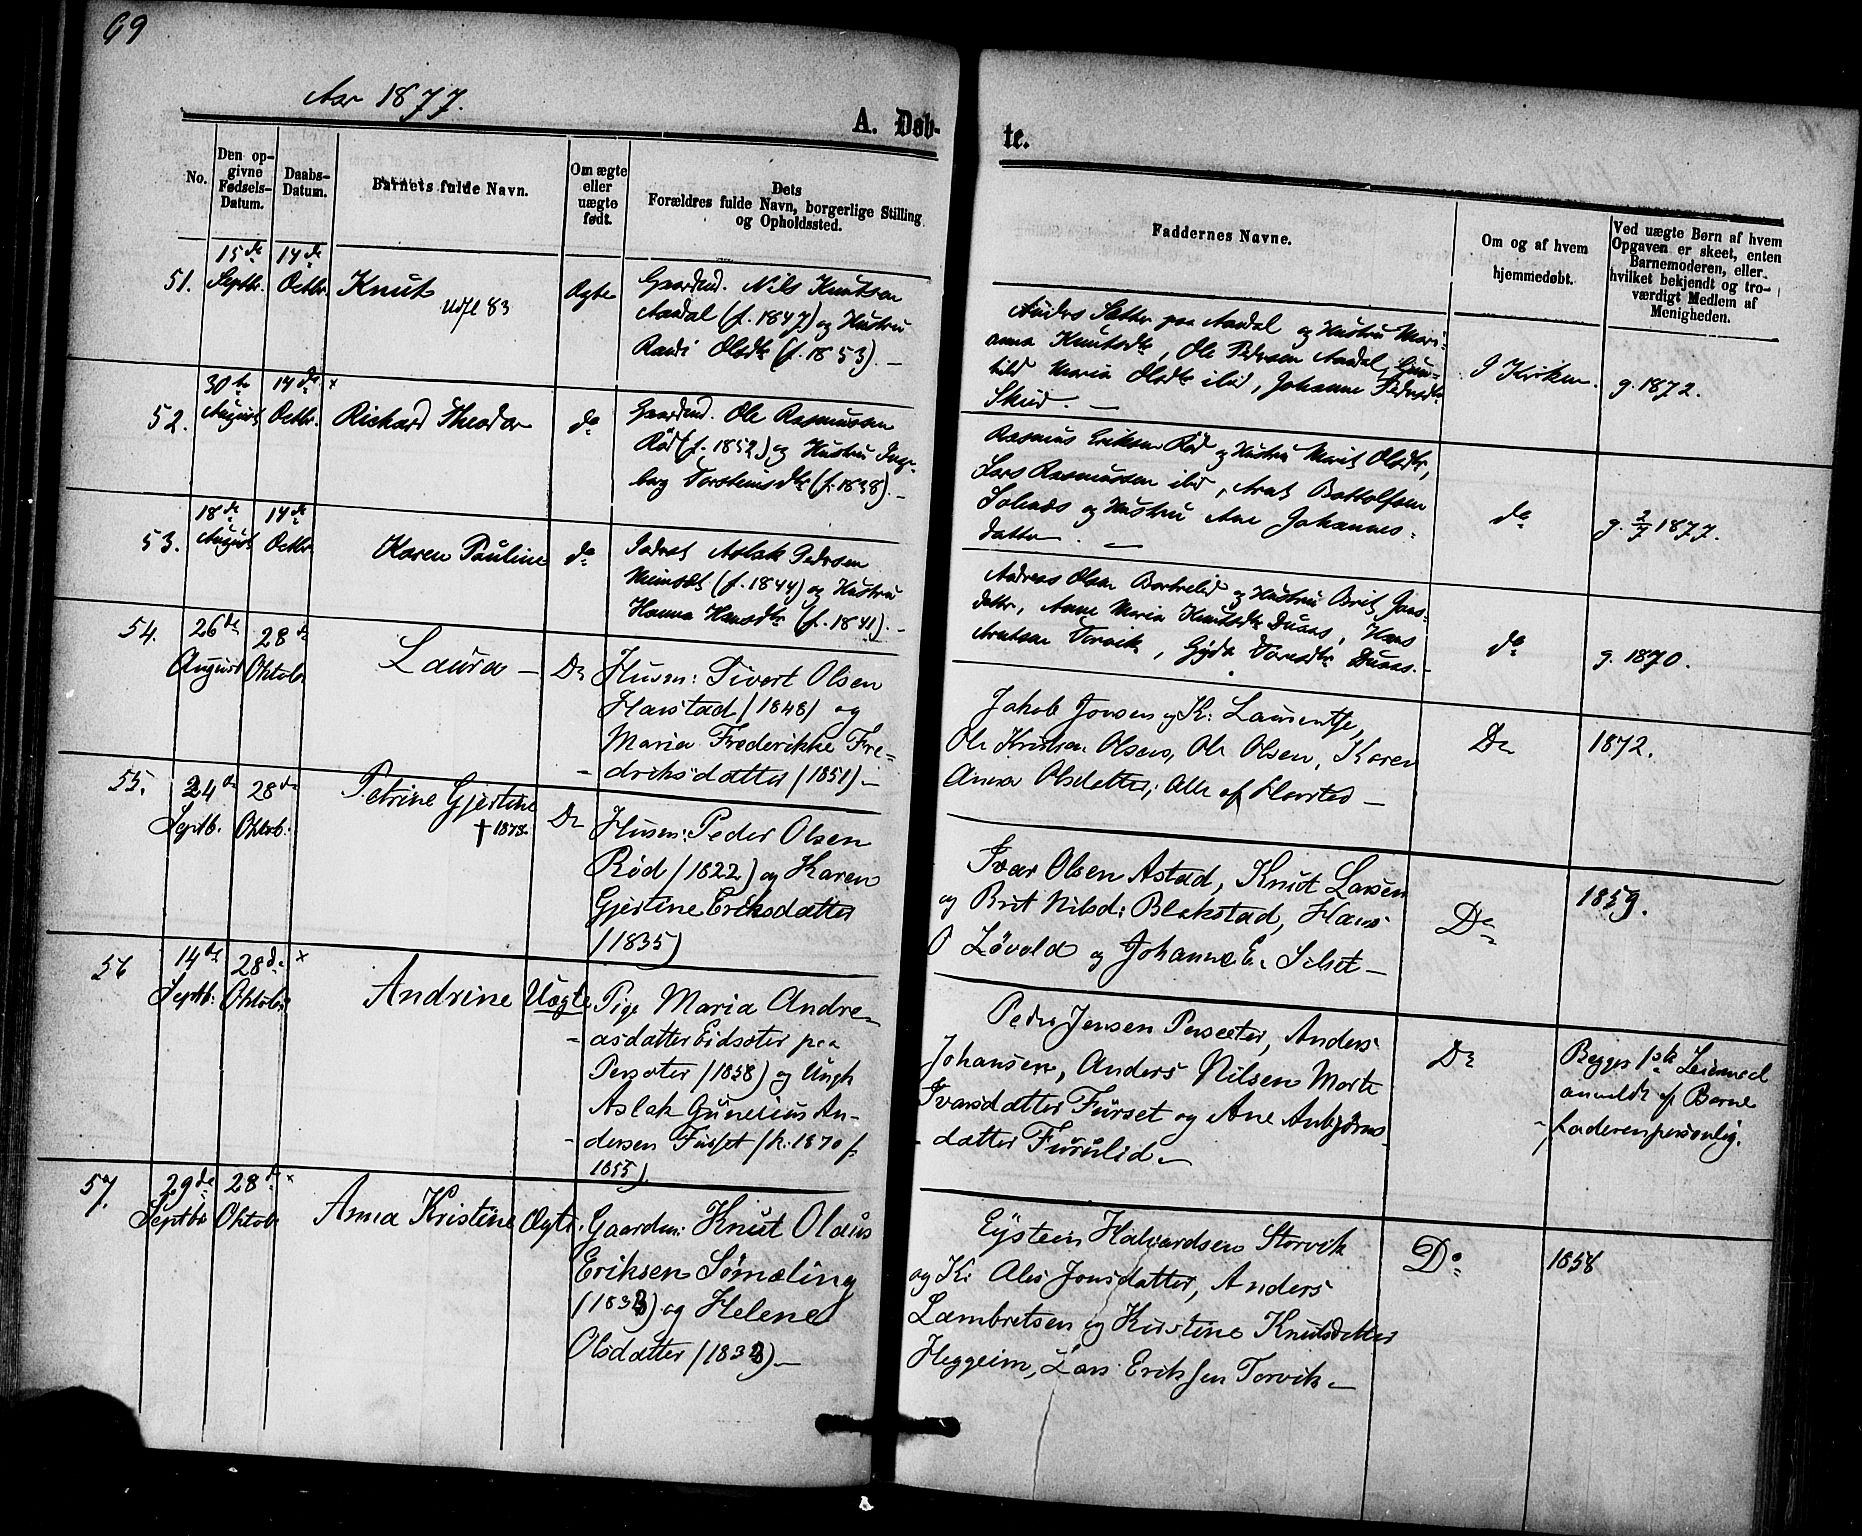 69
Aar 1877.
A. Døb-
te.
No.
Den op-
givne
Fødsels-
Datum.
Daabs-
Datum.
Barnets fulde Navn.
Om ægte
eller
uægte
født.
Dets
Forældres fulde Navn, borgerlige Stilling
og Opholdssted.
Faddernes Navne.
Om og af hvem
hjemmedøbt.
Ved uægte Børn af hvem
Opgaven er skeet, enten
Barnemoderen, eller
hvilket bekjendt og tro-
værdigt Medlem af
Menigheden.
51.
15de
Septbr.
14de
Octbr.
Knut
Udfl 83
Ægte
Gaardmd. Nils Knutsen
Aandal (f. 1847) og Hustru
Randi Olsdtr (f. 1853). —
Anders Sætter paa Aandal og Hustru Mari-
anna Knutsdtr, Ole Pedersen Aandal, Gun-
hild Maria Olsdtr ibid, Johanne Pedersdtr
Skeid. —
I Kirken.
g. 1872.
52.
30te
August
14de
Octbr.
×
Richard Theodor
do
Gaardmd. Ole Rasmussen
Rød (f. 1852) og Hustru Inge-
borg Torsteinsdtr (f. 1838). —
Rasmus Eriksen Rød og Hustru Marit Olsdtr,
Lars Rasmussen ibid, Arnt Bottolfsen
og Hustru Ane Johannes-
datter. —
do
g. 2/7 1877.
53.
18de
August
14de
Octbr
Karen Pauline
do
Inderst Aslak Pedersen
(f. 1844) og Hustru
Hanna Hansdtr (f. 1841). —
Andreas Olsen og Hustru Brit
datter, Anne Maria Knutsdtr Duaas, Hans
Arntsen Torvik, Duaas. —
do
g. 1870.
54.
26de
August
28de
Oktober
Laura —
Do
Husm: Sivert Olsen
Harstad (1848) og
Maria Frederikke Fre-
- driksdatter (1851) —
Jakob Jonsen og K: Laurentse,
Ole Kristian Olsens, Ole Olsen, Karen
Anna Olsdatter; Alle af Harstad —
Do
1872.
55.
24de
Septb.
28de
Oktob.
Petrine Gjertine
† 1878.
Do
Husm: Peder Olsen
Rød (1822) og Karen
Gjertine Eriksdatter
(1835)
Ivar Olsen Astad, Knut Larsen
og Brit Nilsd: Blakstad, Hans
O Løvold og Johanne E. Silset —
Do
1859.
56
14de
Septb.
28de
Oktober
×
Andrine
Uægte
Pige Maria Andre-
- asdatter Eidsæter paa
Persæter (1858) og Ungk
Aslak Gunerius An-
- dersen Furset (k. 1870 f.
1855)
Peder Jensen Persæter, Anders
Johansen, Anders Nilsen Marte
Ivarsdatter Furset og Ane Anbjørns-
- datter Furulid —
Do
Begges 1ste Leiermaal
anmeldt af Barne
- faderen personlig.
57.
29de
Septbr
28de
Oktob.
×
Anna Kristine
Ægte.
Gaardm: Knut Olaus
Eriksen Sømæling
(1833) og Helene
Olsdatter (1833) —
Eystein Halvardsen Storvik
og K: Ales Jonsdatter, Anders
Lambretsen og Kirstine Knutsdatter
Heggeim, Lars Eriksen Torvik —
Do
1858